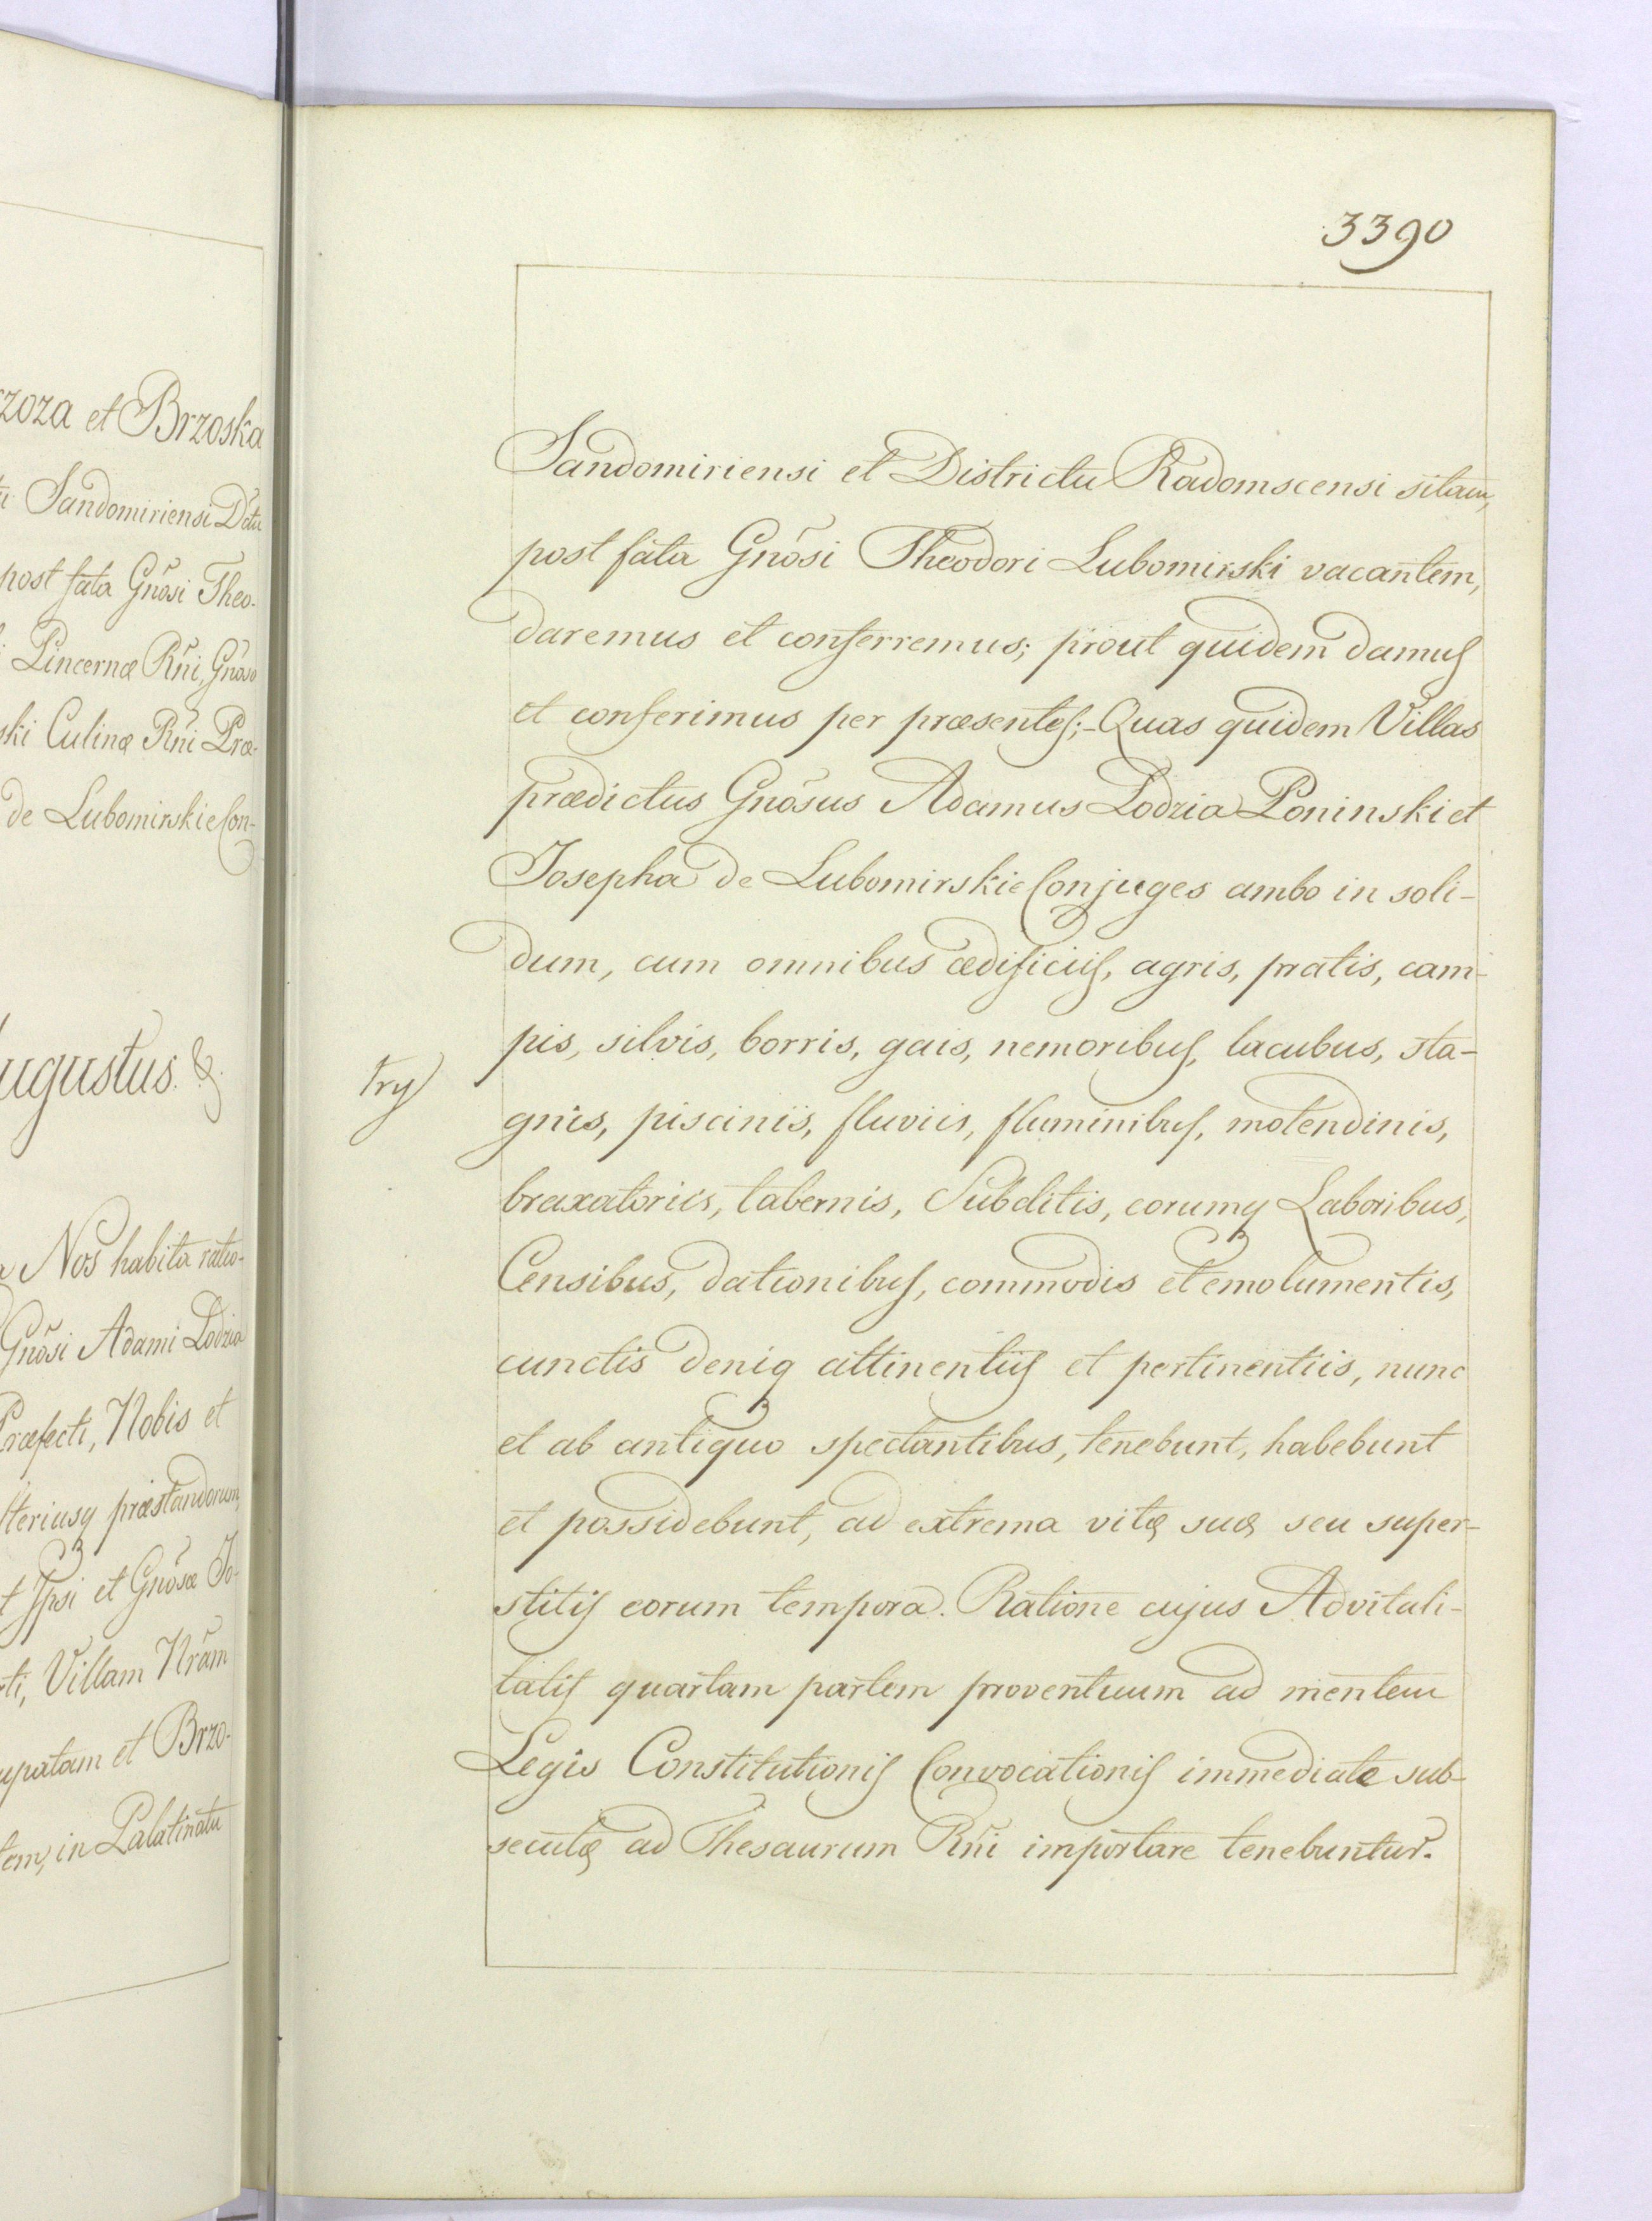 zoza et Brzoska
Sandomiriensi Dctu
post fata Gnōsi Theo-
Pincernæ Rñi, Gnōso
ski Culinæ Rñi Præ-
de Lubomirskie Con-
ugustus. &
Nos habita ratio-
Gnōsi Adami Lodzia
Præfecti, Nobis et
teriusq præstandorum,
t Ipsi et Gnōsæ Jo-
ti, Villam Nrām
upatam et Brzo-
tem, in Palatinatu
3390
Sandomiriensi et Districtu Radomscensi sitam,
post fata Gnōsi Theodori Lubomirski vacantem,
daremus et conferremus; prout quidem damus
et conferimus per præsentes;- Quas quidem Villas
prædictus Gnōsus Adamus Lodzia Poninski et
Josepha de Lubomirskie Conjuges ambo in soli-
dum, cum omnibus ædificiis, agris, pratis, cam-
pis, silvis, borris, gais, nemoribus, lacubus, sta-
try
gnis, piscinis, fluviis, fluminibus, molendinis,
braxatoriis, tabernis, Subditis, eorumq Laboribus,
Censibus, dationibus, commodis et emolumentis,
cunctis deniq attinentiis et pertinentiis, nunc
et ab antiquo spectantibus, tenebunt, habebunt
et possidebunt, ad extrema vitæ suæ seu super-
stitis eorum tempora. Ratione cujus Advitali-
tatis quartam partem proventuum ad mentem
Legis Constitutionis Convocationis immediate sub-
secutæ ad Thesaurum Rñi importare tenebuntur.